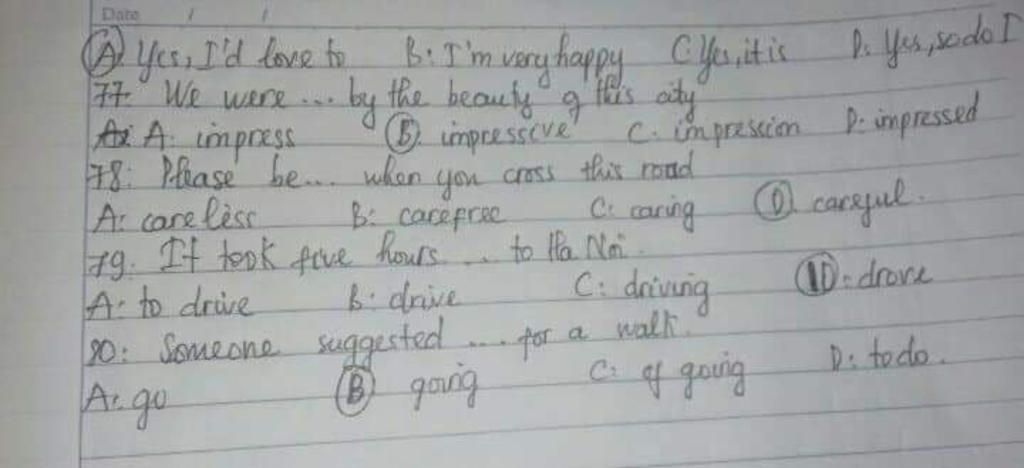 Date / /
A) Yes, I'd love to B: I'm very happy C: Yes, it is D: Yes, so do I
77. We were ... by the beauty of this city
A: impress B. impressive C. impression D. impressed
78: Please be... when you cross this road
A: careless B: carefree C: caring D careful.
79. It took five hours ... to Ha Noi.
A: to drive B: drive C: driving D: drove
80: Someone suggested .... for a walk.
A: go B going C: of going D: to do.